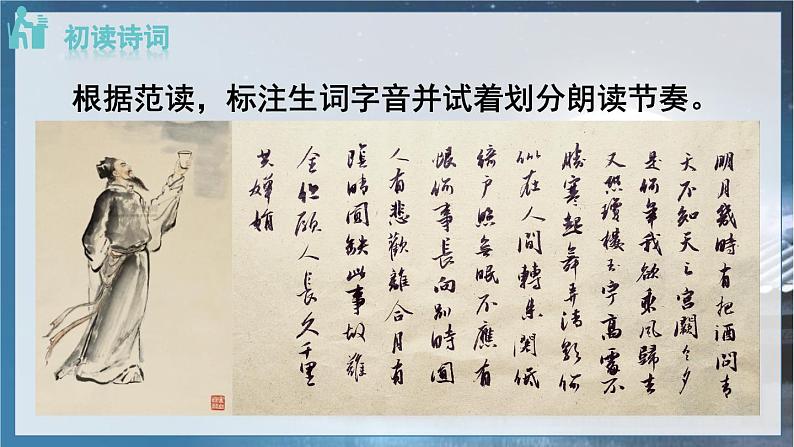 初读诗词
根据范读，标注生词字音并试着划分朗读节奏。
明月幾時有把酒問青
天不知天上宮闕今夕
是何年我欲乘風歸去
又恐瓊樓玉宇高處不
勝寒起舞弄清影何
似在人間轉朱閣低
綺户照無眠不應有
恨何事長向別時圓
人有悲歡離合月有
陰晴圓缺此事故難
全但願人長久千里
共嬋娟